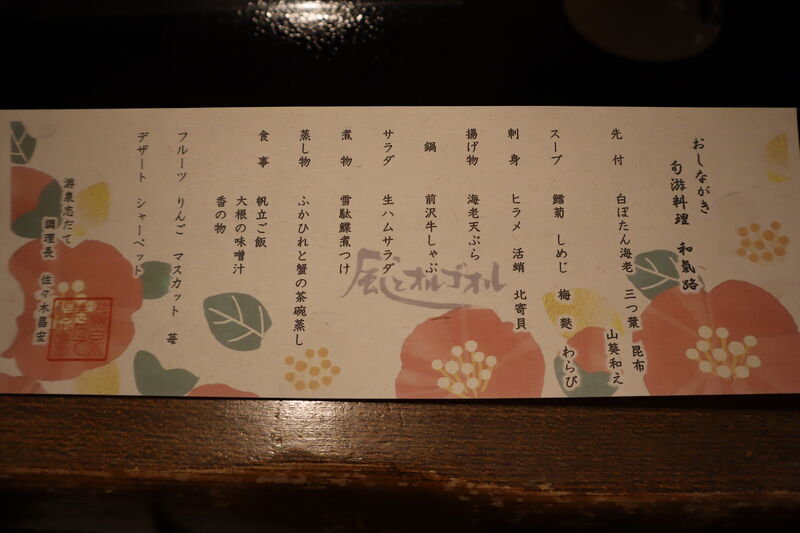 おしながき
旬游料理 和氣路
先付 白ぼたん海老 三つ葉 昆布
山葵和え
スープ 鱈菊 しめじ 梅 麩 わらび
刺身 ヒラメ 活蛸 北寄貝
揚げ物 海老天ぷら
鍋 前沢牛しゃぶ
サラダ 生ハムサラダ
煮物 雪駄鰈煮つけ
蒸し物 ふかひれと蟹の茶碗蒸し
食事 帆立ご飯
大根の味噌汁
香の物
フルーツ りんご マスカット 苺
デザート シャーベット
游泉志だて
調理長 佐々木昌宏
風とオルゴオル